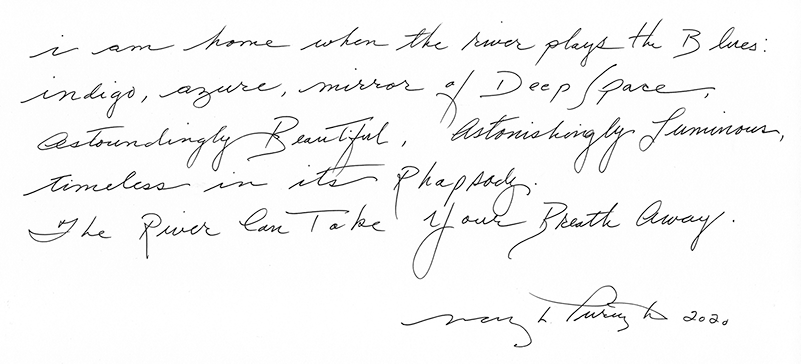 i am home when the river plays the Blues:
indigo, azure, mirror of Deep Space,
astoundingly Beautiful, Astonishingly Luminous,
timeless in its Rhapsody.
The River Can Take Your Breath Away.
L. 2020